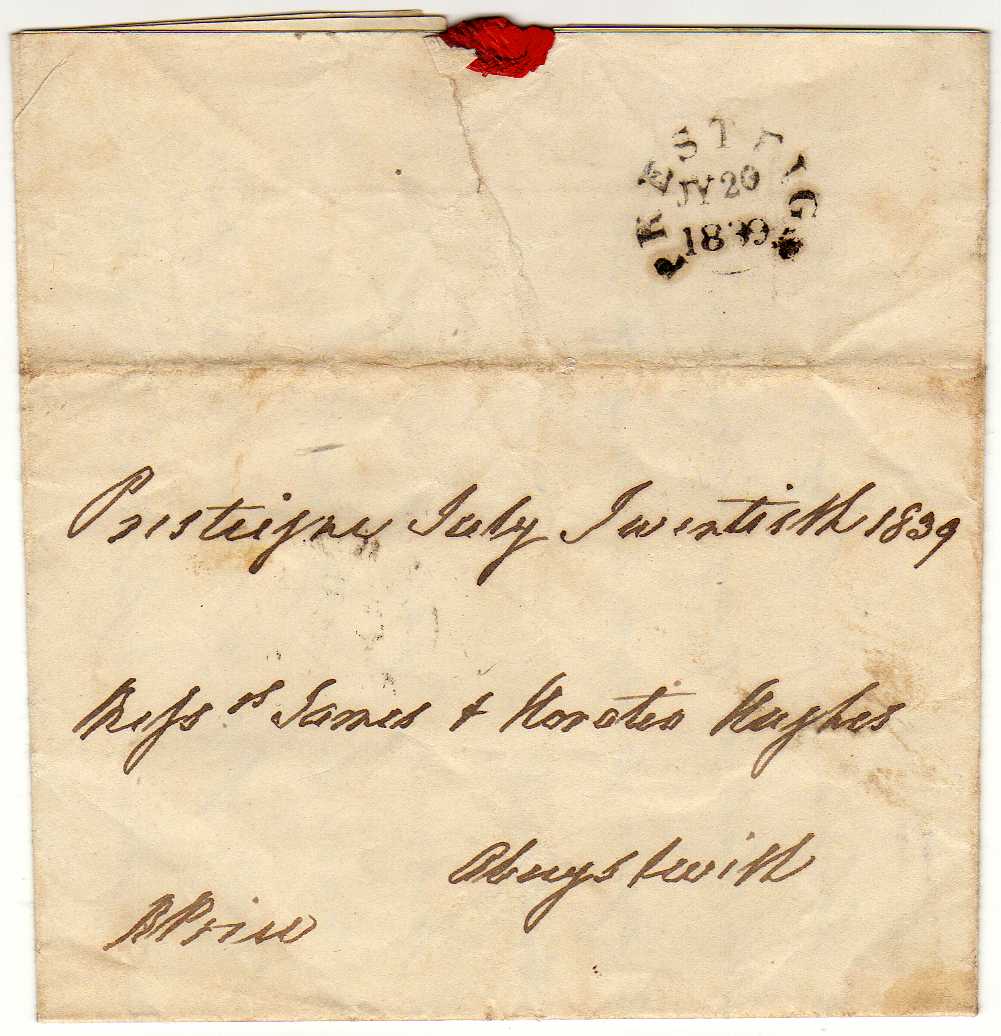 PRESTEIGN
JY 20
1839
Presteigne July Twentieth 1839
Messrs James & Horatio Hughes
Aberystwith
R Price